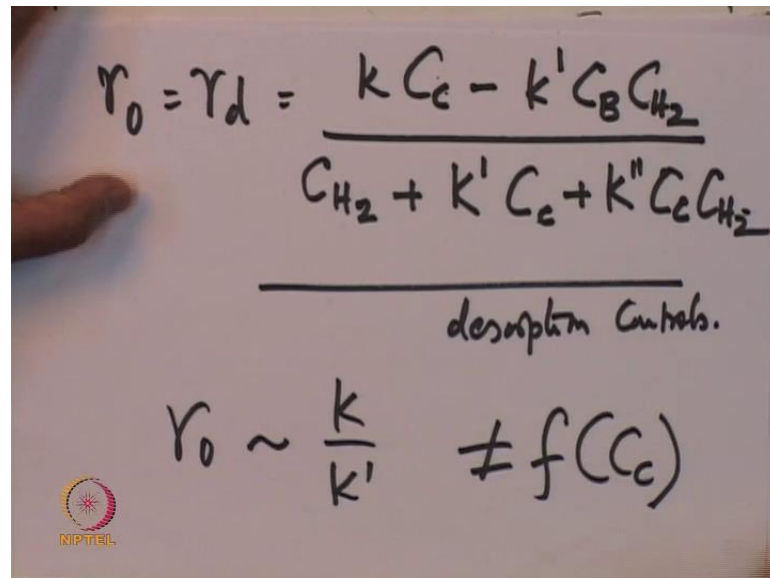 r₀ = r_d = k C_c - k' C_B C_H₂
C_H₂ + K' C_c + K" C_c C_H₂
desorption Controls.
r₀ ~ k
K' ≠ f(C_c)
NPTEL